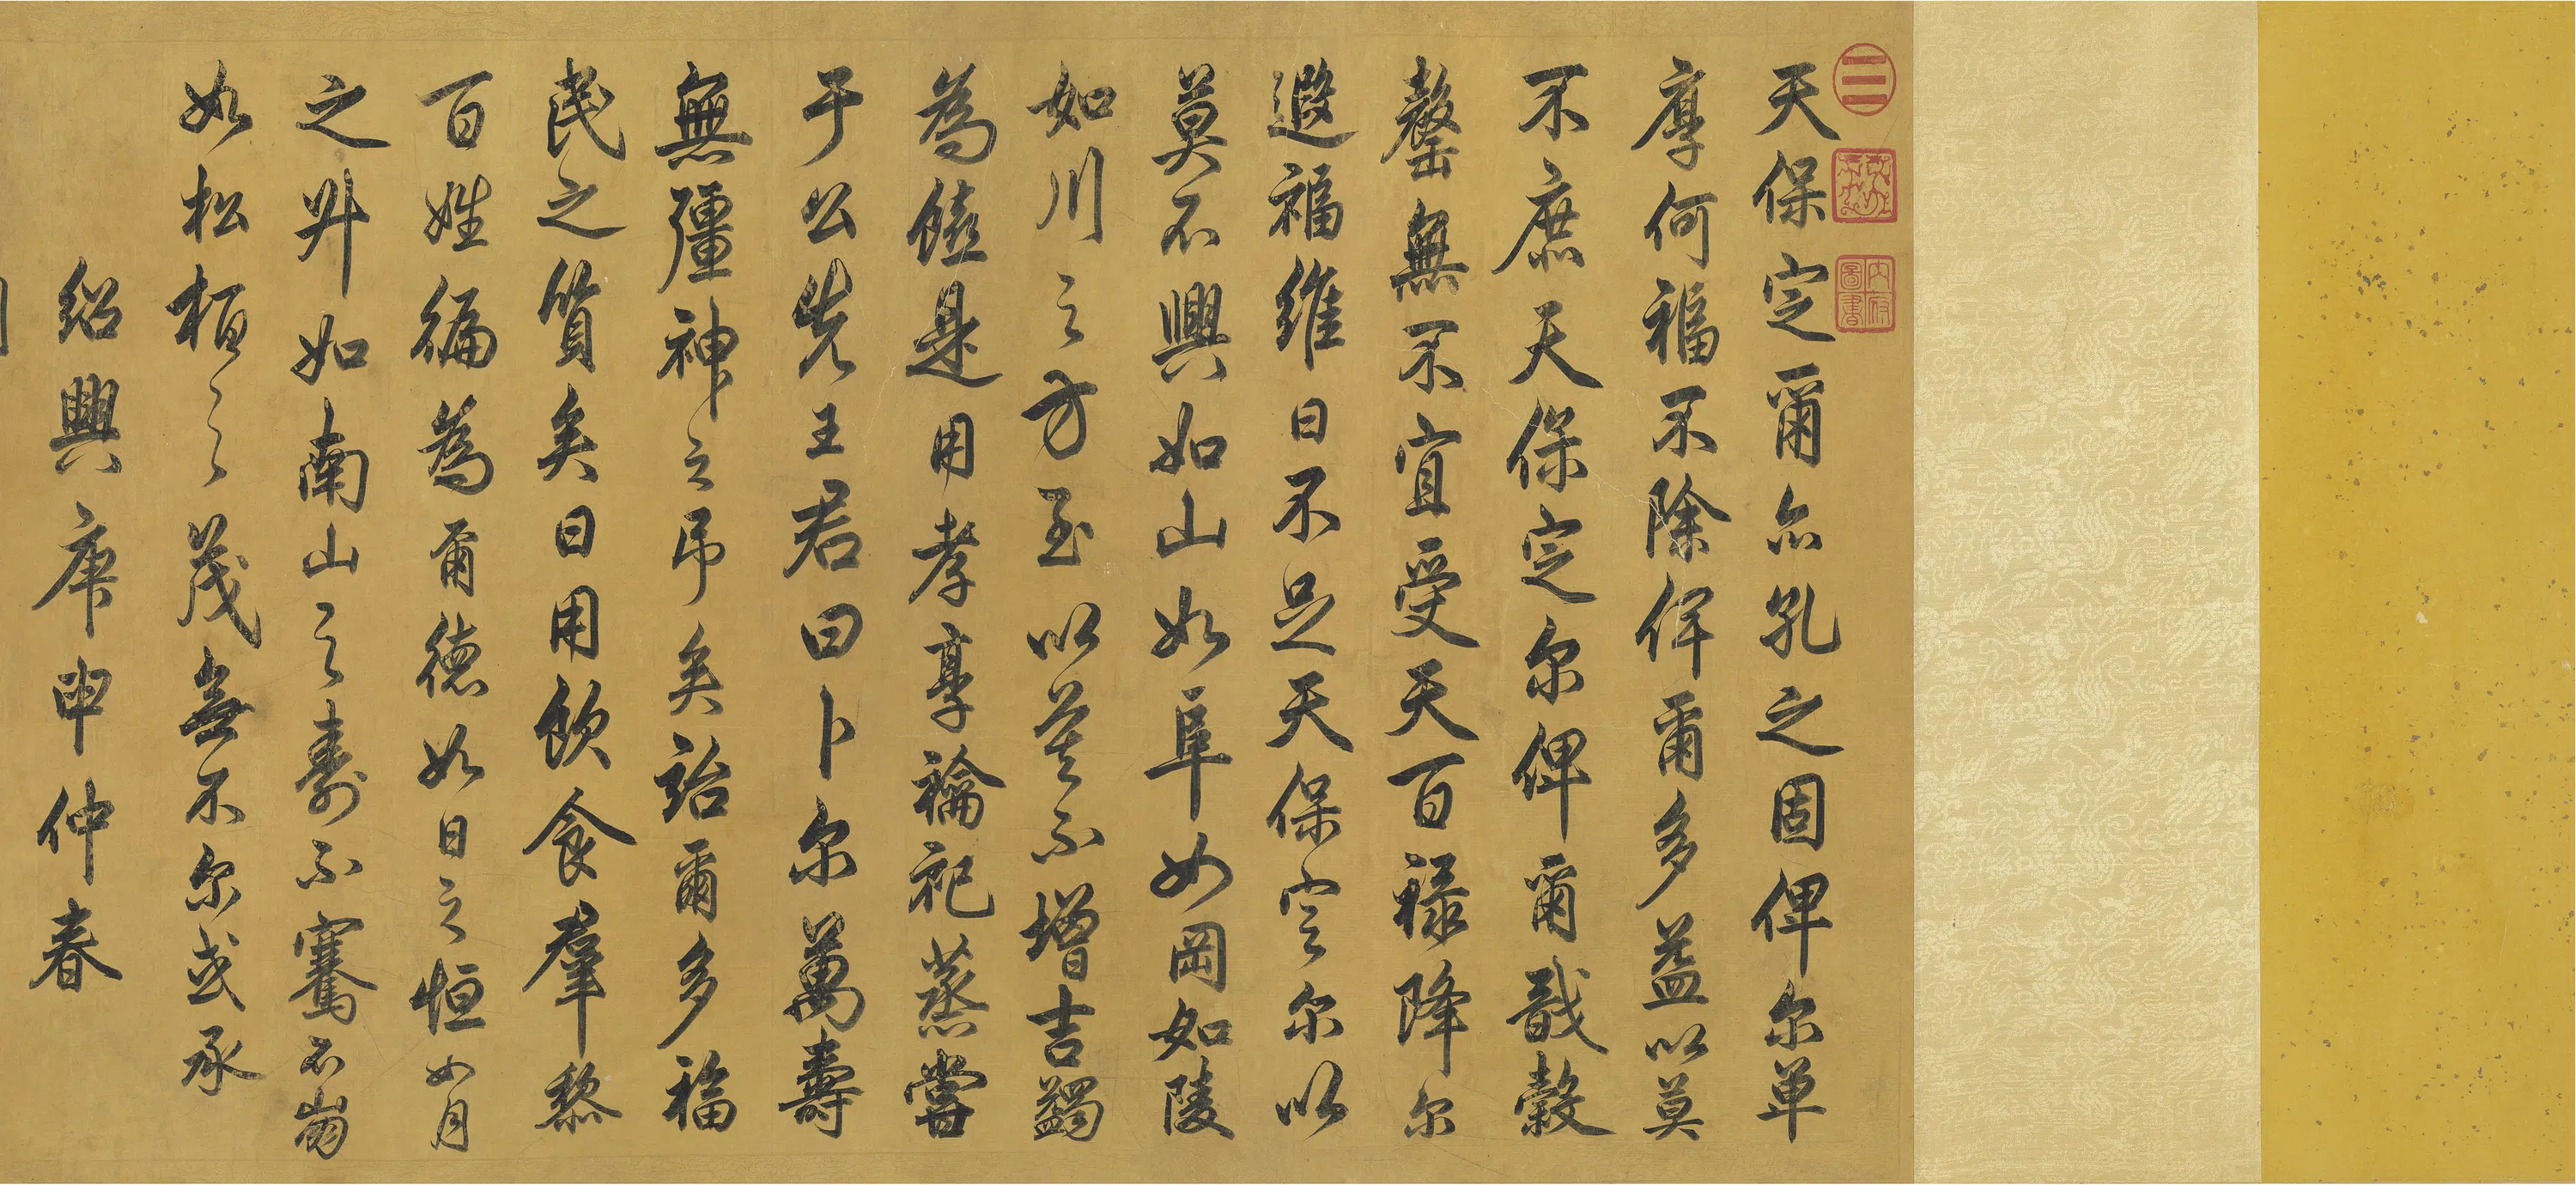 天保定爾亦孔之固俾尔單
厚何福不除俾爾多益以莫
不庶天保定尔俾爾戩穀
罄無不宜受天百祿降尔
遐福維日不足天保定尔以
莫不興如山如阜如岡如陵
如川之方至以莫不增吉蠲
為饎是用孝享禴祀蒸嘗
于公先王君曰卜尔萬壽
無疆神之吊矣詒爾多福
民之質矣日用飲食羣黎
百姓徧為爾德如日之恒如月
之升如南山之壽不騫不崩
如松柏之茂無不尔或承
紹興庚申仲春
內府
圖書